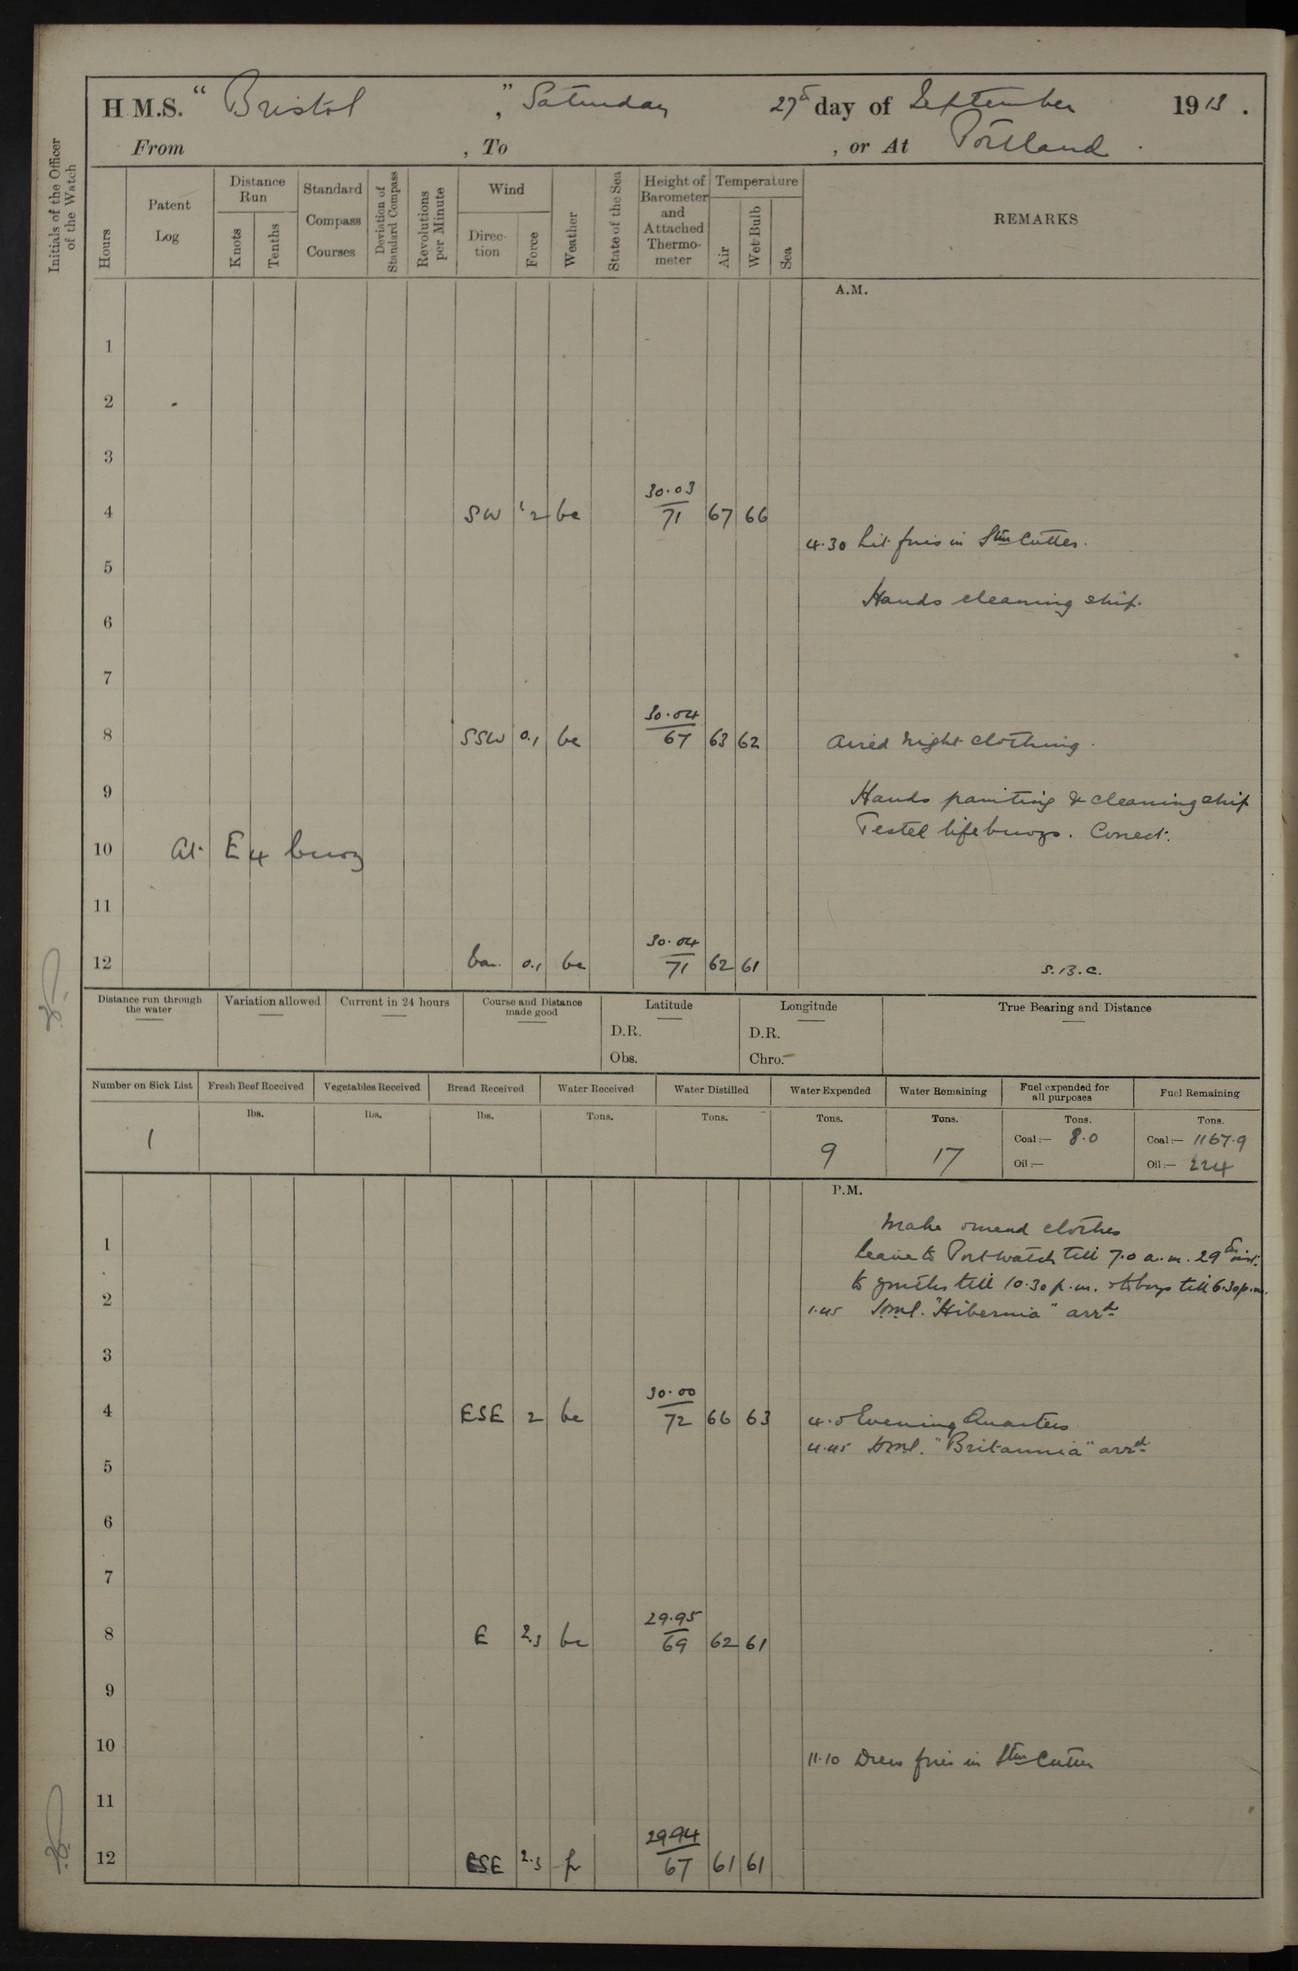 H.M.S. "Bristol", Saturday 27th day of September 1913.
From , To , or At Portland.
Initials of the Officer of the Watch
Hours
Patent Log
Distance Run
Knots
Tenths
Standard Compass Courses
Deviation of Standard Compass
Revolutions per Minute
Wind
Direction
Force
Weather
State of the Sea
Height of Barometer and Attached Thermometer
Temperature
Air
Wet Bulb
Sea
REMARKS
A.M.
1
2
3
4 SW 1.2 bc 30.03 71 67 66
4.30 Lit fires in Stm Cutter.
5
Hands cleaning ship.
6
7
8 SSW 0.1 bc 30.04 67 63 62 Aired night clothing.
9 Hands painting & cleaning ship
Tested lifebuoys. Correct.
10 At E4 buoy
11
12 0.1 bc 30.04 71 62 61 S.B.C.
Distance run through the water
Variation allowed
Current in 24 hours
Course and Distance made good
Latitude
D.R.
Obs.
Longitude
D.R.
Chro.
True Bearing and Distance
Number on Sick List
1
Fresh Beef Received
lbs.
Vegetables Received
lbs.
Bread Received
lbs.
Water Received
Tons.
Water Distilled
Tons.
Water Expended
Tons.
9
Water Remaining
Tons.
17
Fuel expended for all purposes
Tons.
Coal:— 8.0
Oil:—
Fuel Remaining
Tons.
Coal:— 1167.9
Oil:— 224
P.M.
Make & mend clothes
1 Leave to Port Watch till 7.0 a.m. 29th inst.
2 to till 10.30 p.m. & boys till 6.30 p.m.
1.45 H.M.S. "Hibernia" arrd
3
4 ESE 2 bc 30.00 72 66 63 4.0 Evening Quarters
4.45 H.M.S. "Britannia" arrd
5
6
7
8 E 2.3 bc 29.95 69 62 61
9
10 11.10 Drew fires in Stm Cutter
11
12 ESE 2.3 29.94 67 61 61